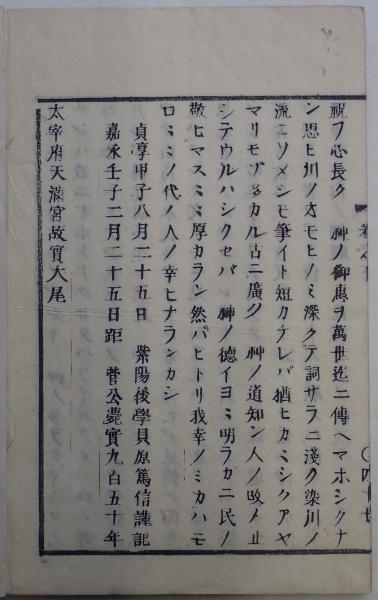 祝フ心長ク 神ノ御惠ヲ萬世迄ニ傳ヘマホシクナ
ン思ヒ川ノオモヒノミ深クテ詞サラニ淺ク染川ノ
流ニソメシモ筆イト短カケレバ猶ヒカミシクアヤ
マリモゾ多カル古ニ廣ク 神ノ道知ン人ノ改メ正
シテウルハシクセバ 神ノ德イヨミ明ラカニ民ノ
敬ヒマスミミ厚カラン然バヒトリ我幸ノミカハモ
ロミミノ代ノ人ノ幸ヒナランカシ
貞享甲子八月二十五日 紫陽後學貝原篤信謹記
嘉永壬子二月二十五日距 菅公薨實九百五十年
太宰府天滿宮故實大尾